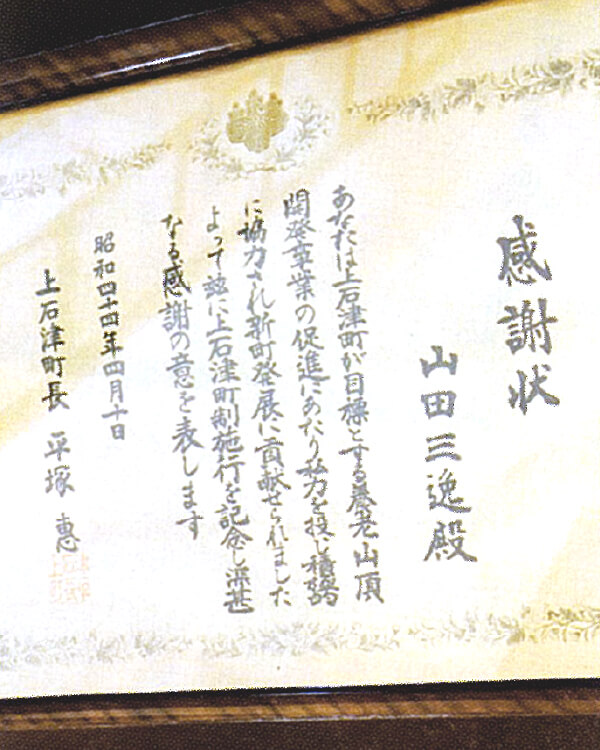 感謝状
山田三逸殿
あなたは上石津町が目標とする養老山頂
開発事業の促進にあたり私力を投じ積極
に協力され新町発展に貢献せられました
よって茲に上石津町制施行を記念し深甚
なる感謝の意を表します
昭和四十四年四月十日
上石津町長 平塚 惠